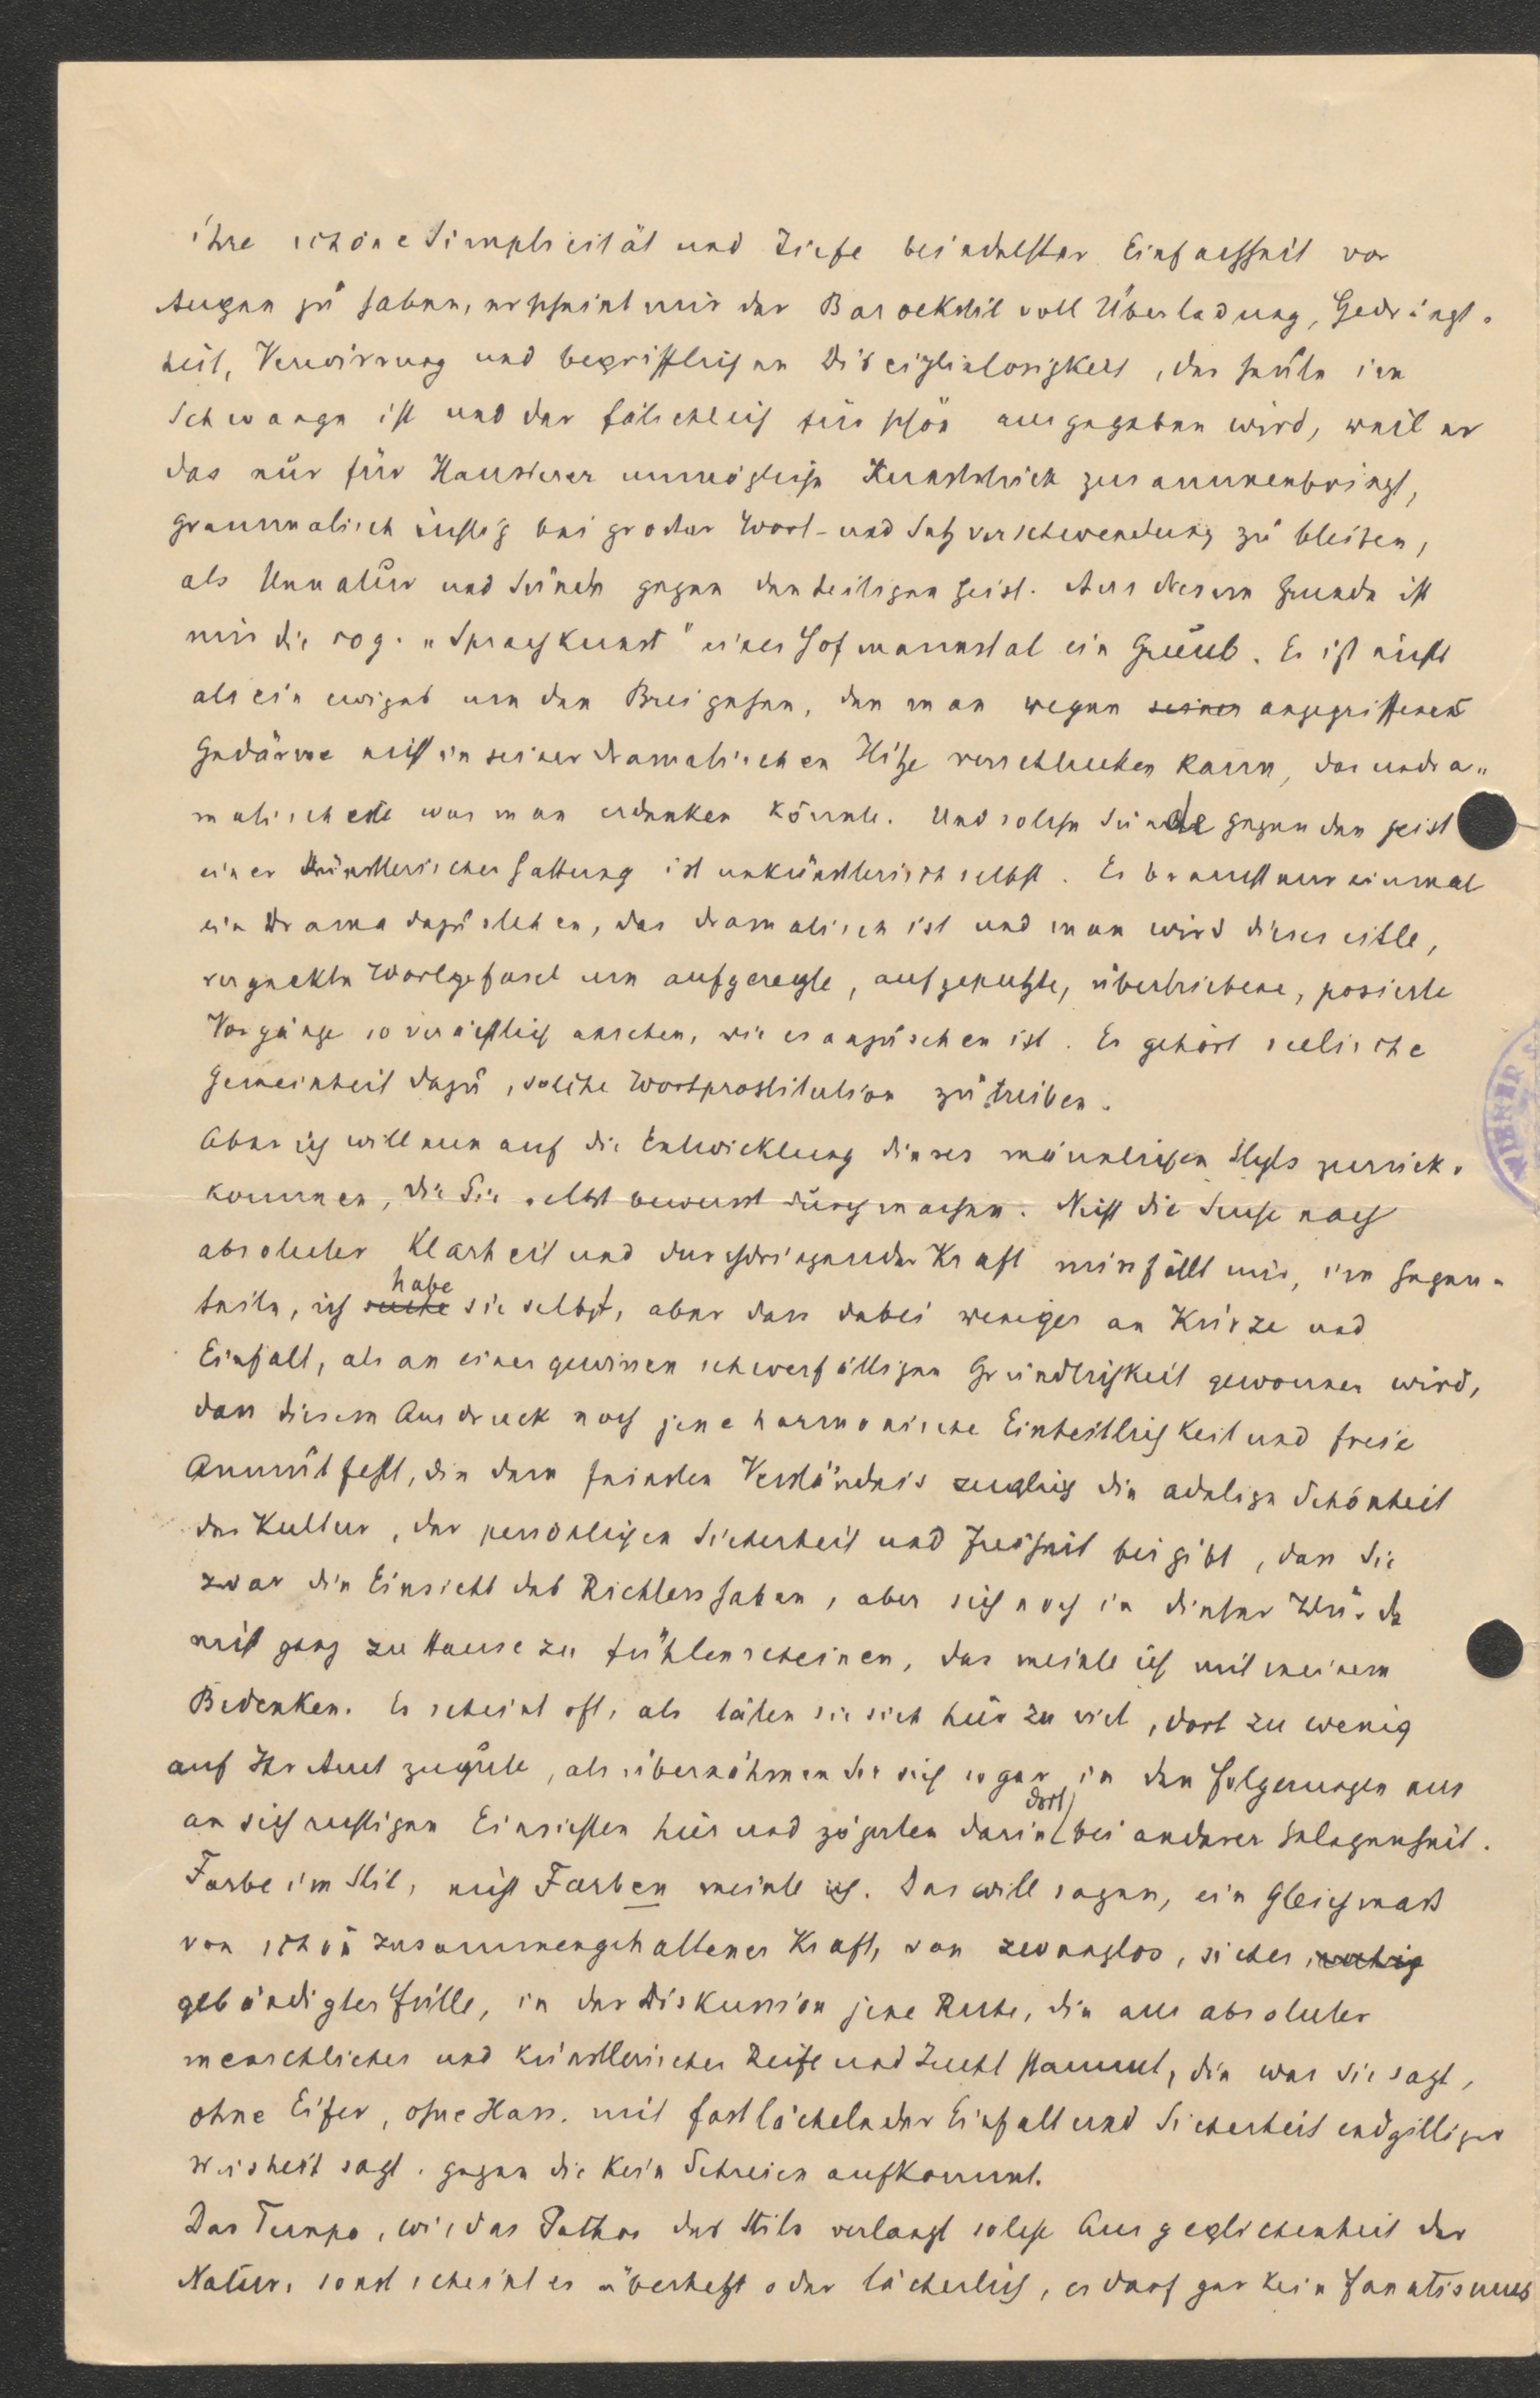 ihre schöne Simplicität und Tiefe bei edelster Einfachheit vor
Augen zu haben, erscheint mir der Barockstil voll Überladung, Gedrängt-
heit, Verwirrung und begrifflichen Disciplinlosigkeit, der heute im
Schwange ist und der fälschlich für schön ausgegeben wird, weil er
das nur für Hausierer unmögliche Kunststück zusammenbringt,
grammatisch richtig bei grosser Wort- und Satzverschwendung zu bleiben,
als Unnatur und Sünde gegen den heiligen Geist. Aus diesem Grunde ist
mir die sog. „Sprachkunst" eines Hofmannstal ein Greuel. Es ist nichts
als ein ewiges um den Brei gehen, den man wegen seiner angegriffenen
Gedärme nicht in seiner dramatischen Hitze verschlucken kann, das undra-
matischeste was man erdenken könnte. Und solche Sünde gegen den Geist
einer künstlerischen Gattung ist unkünstlerisch selbst. Es braucht nur einmal
ein Drama dazustehen, das dramatisch ist und man wird dieses eitle,
Wortgefasel um aufgeregte, aufgeputzte, übertriebene, posierte
Vorgänge so verächtlich ansehen, wie es anzusehen ist. Es gehört seelische
Gemeinheit dazu, solche Wortprostitution zu treiben.
Aber ich will nun auf die Entwicklung dieses männlichen Styls zurück-
kommen, die Sie selbst bewusst durchmachen. Nicht die Suche nach
absoluter Klarheit und durchdringender Kraft missfällt mir, im Gegen-
teile, ich suche habe sie selbst, aber dass dabei weniger an Kürze und
Einfalt, als an einer gewissen schwerfälligen Gründlichkeit gewonnen wird,
dass diesem Ausdruck noch jene harmonische Einheitlichkeit und freie
Anmut fehlt, die dem feinsten Verständnis zugleich die adelige Schönheit
der Kultur, der persönlichen Sicherheit und Freiheit beigibt, dass Sie
zwar die Einsicht des Richters haben, aber sich noch in dieser Würde
nicht ganz zu Hause zu fühlen scheinen, das meinte ich mit meinem
Bedenken. Es scheint oft, als täten sie sich hier zu viel, dort zu wenig
auf Ihr Amt zugute, als übernähmen Sie sich sogar in den Folgerungen aus
an sich richtigen Einsichten hier und zögerten darin dort bei anderer Gelegenheit.
Farbe im Stil, nicht Farben meinte ich. Das will sagen, ein Gleichmass
von schön zusammengehaltener Kraft, von zwanglos, sicher, ruhig
gebändigter Fülle, in der Diskussion jene Ruhe, die aus absoluter
menschlicher und künstlerischer Reife und Zucht stammt, die was sie sagt,
ohne Eifer, ohne Hass, mit fast lächelnder Einfalt und Sicherheit endgiltiger
Weisheit sagt, gegen die kein Schreien aufkommt.
Das Tempo, wie das Pathos des Stils verlangt solche Ausgeglichenheit der
Natur, sonst scheint es überhetzt oder lächerlich, es darf gar kein Fanatismus